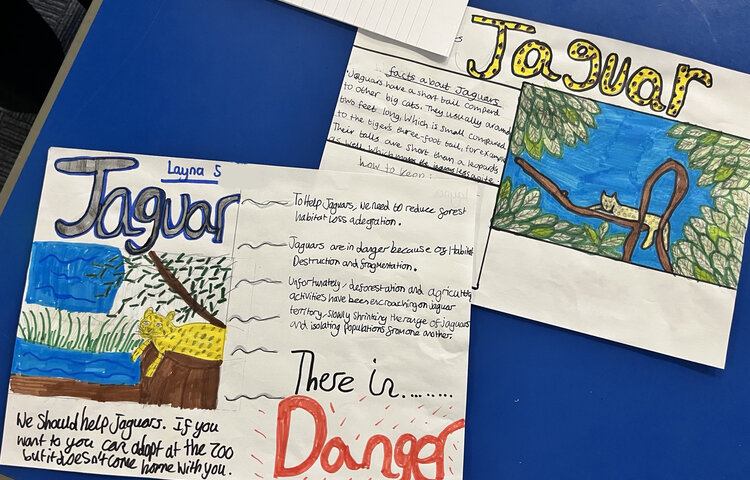 Jaguar
facts about Jaguars
Jaguars have a short tail
to other big cats. They usually around
two feet long, Which is small compared
to the tiger's three-foot tail, for example
Their tails are short than a leopards
as well. Which
how to keep
Layna S
Jaguar
We Should help Jaguars. If you
want to you can adopt at the zoo
but it doesn't come home with you.
To Help Jaguars, We need to reduce forest
habitat loss
Jaguars are in danger because of Habitat
Destruction and fragmentation.
Unfortunately, deforestation and
activities have been encroaching on Jaguar
territory, slowly shrinking the range of Jaguars
and isolating populations from one another.
There in........
Danger